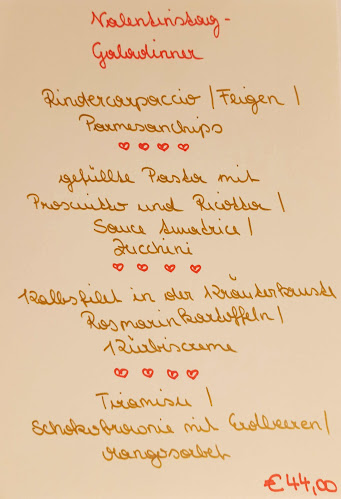 Valentinstag-
Galadinner
Rindercarpaccio / Feigen /
Parmesanchips
gefüllte Pasta mit
Prosciutto und Ricotta /
Sauce Amatrice /
Zucchini
Kalbsfilet in der Kräuterkruste
Rosmarinkartoffeln /
Kürbiscreme
Tiramisu /
Schokobrownie mit Erdbeeren /
Mangosorbet
€44,00